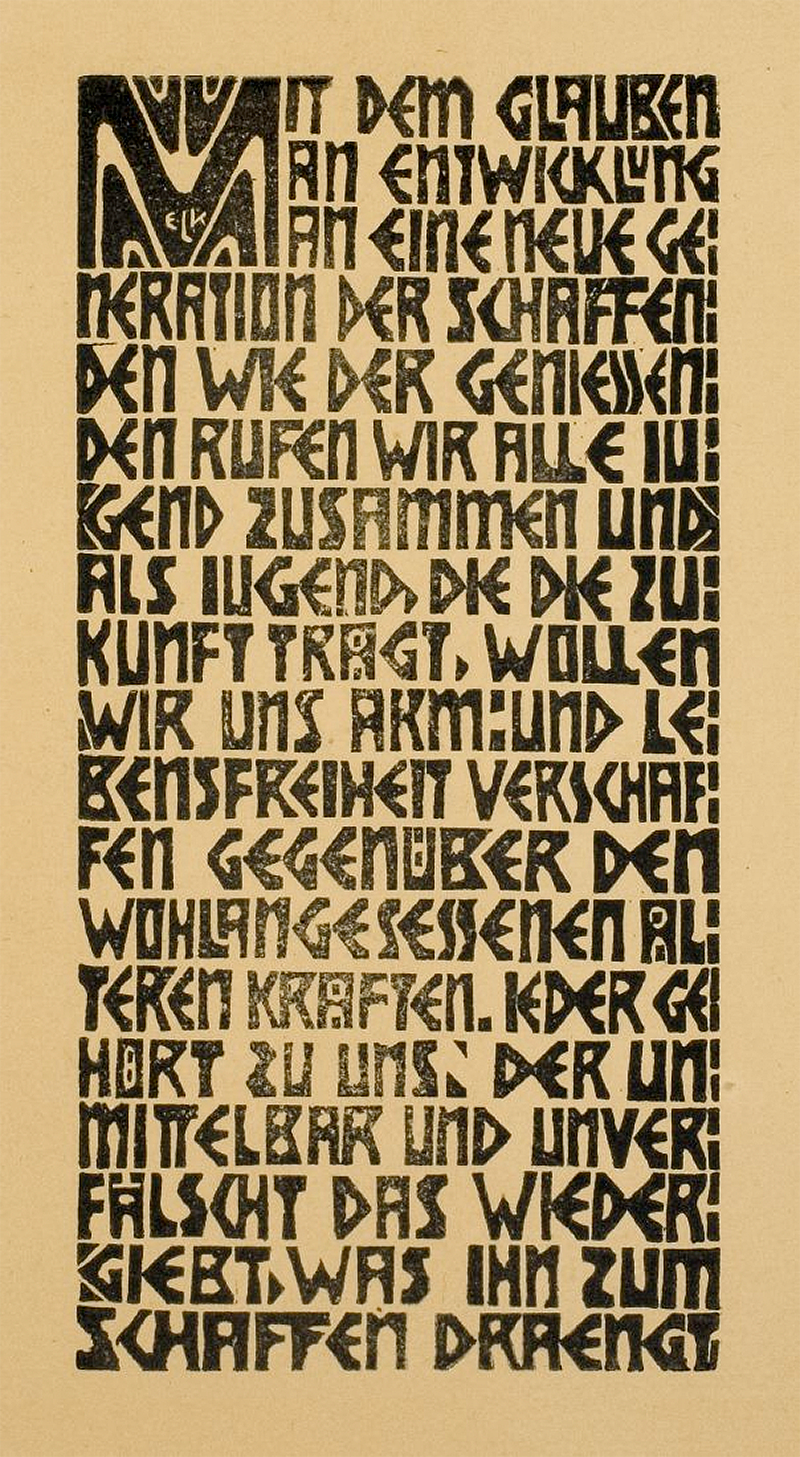 MIT DEM GLAUBEN
AN ENTWICKLUNG
ELK
AN EINE NEUE GE:
NERATION DER SCHAFFEN:
DEN WIE DER GENIESSEN:
DEN RUFEN WIR ALLE IU:
GEND ZUSAMMEN UND
ALS IUGEND, DIE DIE ZU:
KUNFT TRÄGT, WOLLEN
WIR UNS ARM:UND LE:
BENSFREIHEIT VERSCHAF:
FEN GEGENÜBER DEN
WOHLANGESESSENEN ÄL:
TEREN KRÄFTEN. IEDER GE:
HÖRT ZU UNS, DER UN:
MITTELBAR UND UNVER:
FÄLSCHT DAS WIEDER:
GIEBT, WAS IHN ZUM
SCHAFFEN DRAENGT